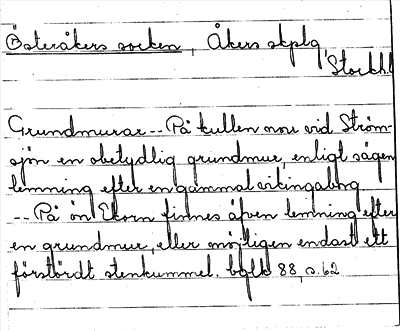 Österåkers socken, Åkers skplg
Stockh.l
Grundmurar -- På kullen norr vid Ström-
sjön en obetydlig grundmur, enligt sägen
lemning efter en gammal vikingaborg
-- På ön Ekorn finnes äfven lemning efter
en grundmur, eller möjligen endast ett
förstördt stenkummel. 88, s. 62